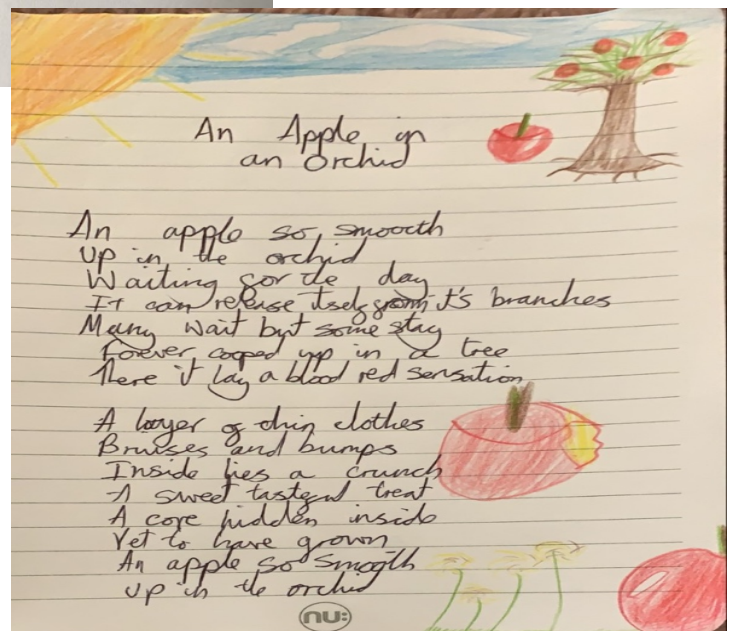 An Apple in
an Orchid
An apple so smooth
up in the orchid
Waiting for the day
It can release itself from it's branches
Many wait but some stay
Forever cooped up in a tree
There it lay a blood red sensation
A layer of thin clothes
Bruises and bumps
Inside lies a crunch
A sweet tasteful treat
A core hidden inside
Yet to have grown
An apple so smooth
up in the orchid
nu: